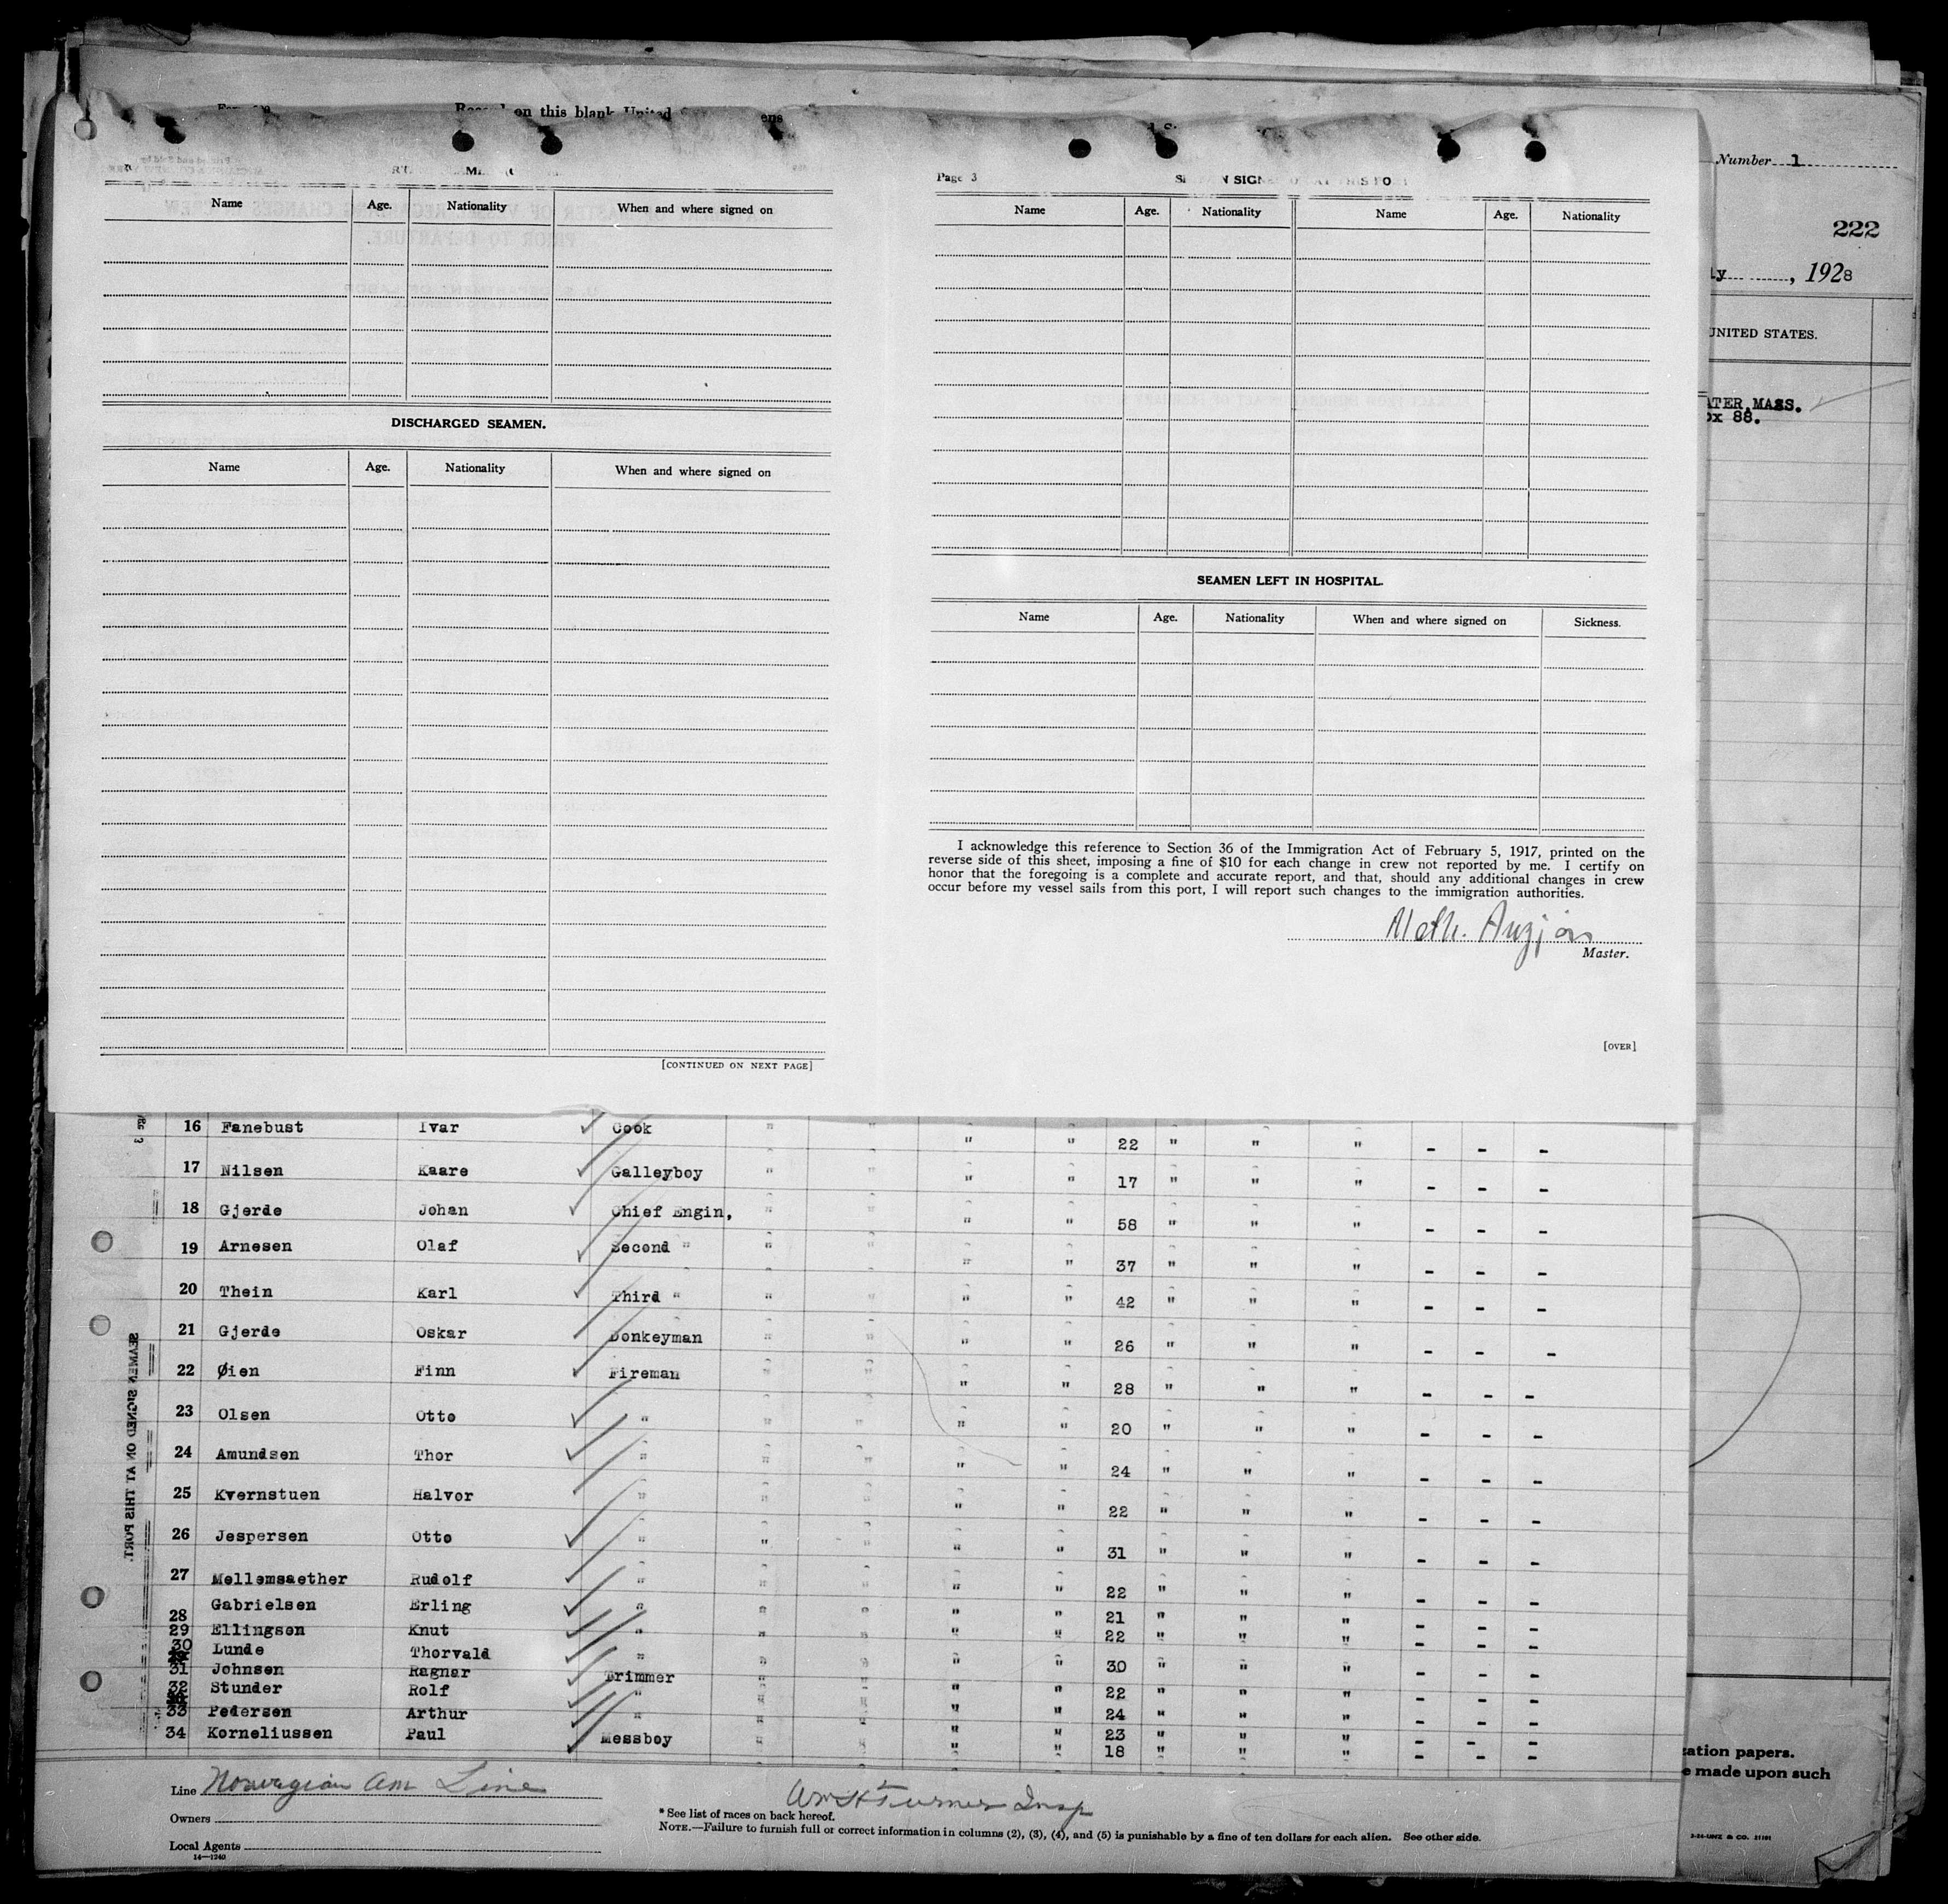 on this blank United
Number 1
222
, 1928
UNITED STATES.
MASS.
88.
Name Age. Nationality When and where signed on
DISCHARGED SEAMEN.
Name Age. Nationality When and where signed on
[CONTINUED ON NEXT PAGE]
Page 3
Name Age. Nationality Name Age. Nationality
SEAMEN LEFT IN HOSPITAL.
Name Age. Nationality When and where signed on Sickness.
I acknowledge this reference to Section 36 of the Immigration Act of February 5, 1917, printed on the
reverse side of this sheet, imposing a fine of $10 for each change in crew not reported by me. I certify on
honor that the foregoing is a complete and accurate report, and that, should any additional changes in crew
occur before my vessel sails from this port, I will report such changes to the immigration authorities.
Master.
[OVER]
SEAMEN SIGNED ON AT THIS PORT.
16 Fanebust Ivar Cook " " " " 22 " " " - - -
17 Nilsen Kaare Galleyboy " " " " 17 " " " - - -
18 Gjerde Johan Chief Engin, " " " " 58 " " " - - -
19 Arnesen Olaf Second " " " " " 37 " " " - - -
20 Thein Karl Third " " " " " 42 " " " - - -
21 Gjerde Oskar Donkeyman " " " " 26 " " " - - -
22 Øien Finn Fireman " " " " 28 " " " - - -
23 Olsen Otto " " " " " 20 " " " - - -
24 Amundsen Thor " " " " " 24 " " " - - -
25 Kvernstuen Halvor " " " " " 22 " " " - - -
26 Jespersen Otto " " " " " 31 " " " - - -
27 Mellemsaether Rudolf " " " " " 22 " " " - - -
28 Gabrielsen Erling " " " " " 21 " " " - - -
29 Ellingsen Knut " " " " " 22 " " " - - -
30 Lunde Thorvald " " " " " 30 " " " - - -
31 Johnsen Ragnar Trimmer " " " " 22 " " " - - -
32 Stunder Rolf " " " " " 24 " " " - - -
33 Pedersen Arthur " " " " " 23 " " " - - -
34 Korneliussen Paul Messboy " " " " 18 " " " - - -
Line Norwegian Am Line
Owners
Local Agents
14—1240
Turner Insp
* See list of races on back hereof.
NOTE.—Failure to furnish full or correct information in columns (2), (3), (4), and (5) is punishable by a fine of ten dollars for each alien. See other side.
papers.
made upon such